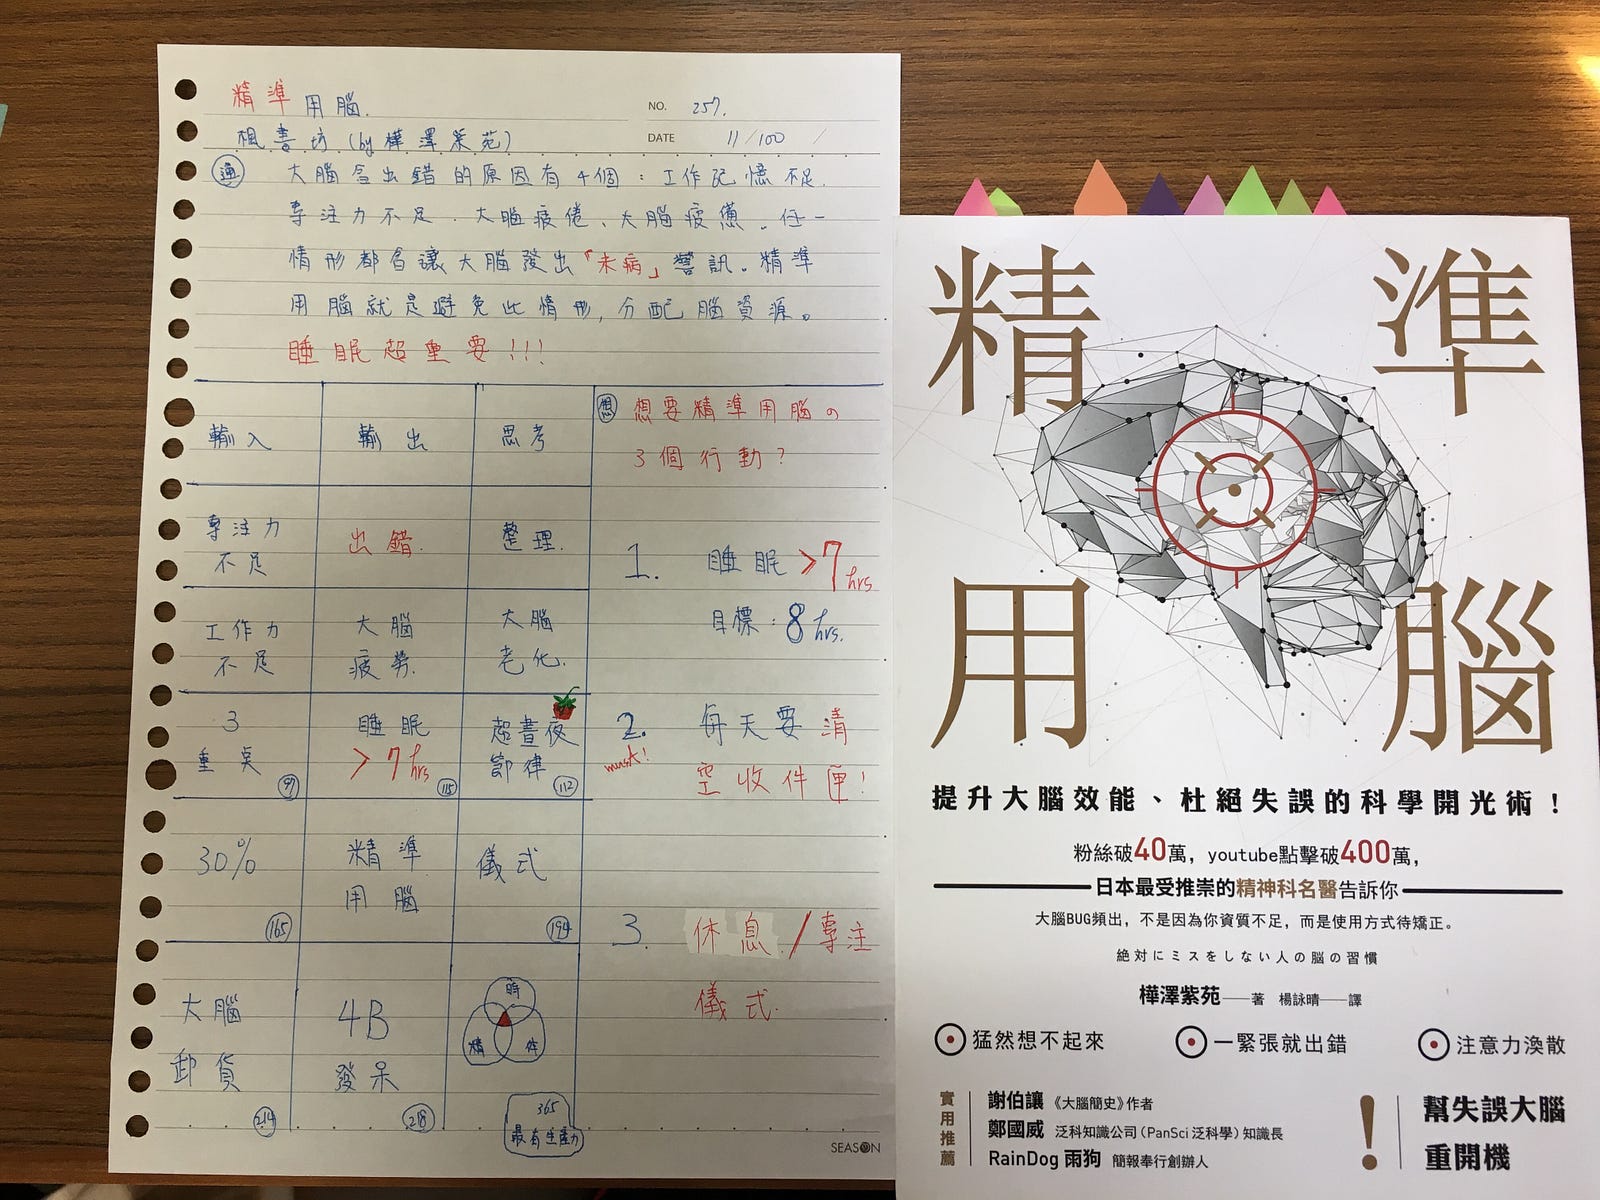 精準用腦.
NO. 257.
楓書坊 (by 樺澤紫苑)
DATE 11/100 /
通 大腦會出錯的原因有4個：工作記憶不足.
專注力不足、大腦疲倦、大腦疲憊。任一
情形都會讓大腦發出「未病」警訊。精準
用腦就是避免此情形,分配腦資源。
睡眠超重要!!!
輸入 輸出 思考
專注力不足 出錯. 整理.
工作力不足 大腦疲勞. 大腦老化.
3重點 97 睡眠>7hrs 115 超晝夜節律 112
30% 165 精準用腦 儀式 194
大腦卸貨 214 4B發呆 218 時 精 体
365
最有生產力
想 想要精準用腦の
3個行動?
1. 睡眠>7hrs
目標：8hrs.
2. 每天要清
must! 空收件匣!
3. 休息/專注
儀式.
SEASON
精準
用腦
提升大腦效能、杜絕失誤的科學開光術！
粉絲破40萬，youtube點擊破400萬，
日本最受推崇的精神科名醫告訴你
大腦BUG頻出，不是因為你資質不足，而是使用方式待矯正。
絶対にミスをしない人の脳の習慣
樺澤紫苑——著 楊詠晴——譯
猛然想不起來 一緊張就出錯 注意力渙散
實用推薦
謝伯讓 《大腦簡史》作者
鄭國威 泛科知識公司（PanSci 泛科學）知識長
RainDog 雨狗 簡報奉行創辦人
！
幫失誤大腦
重開機